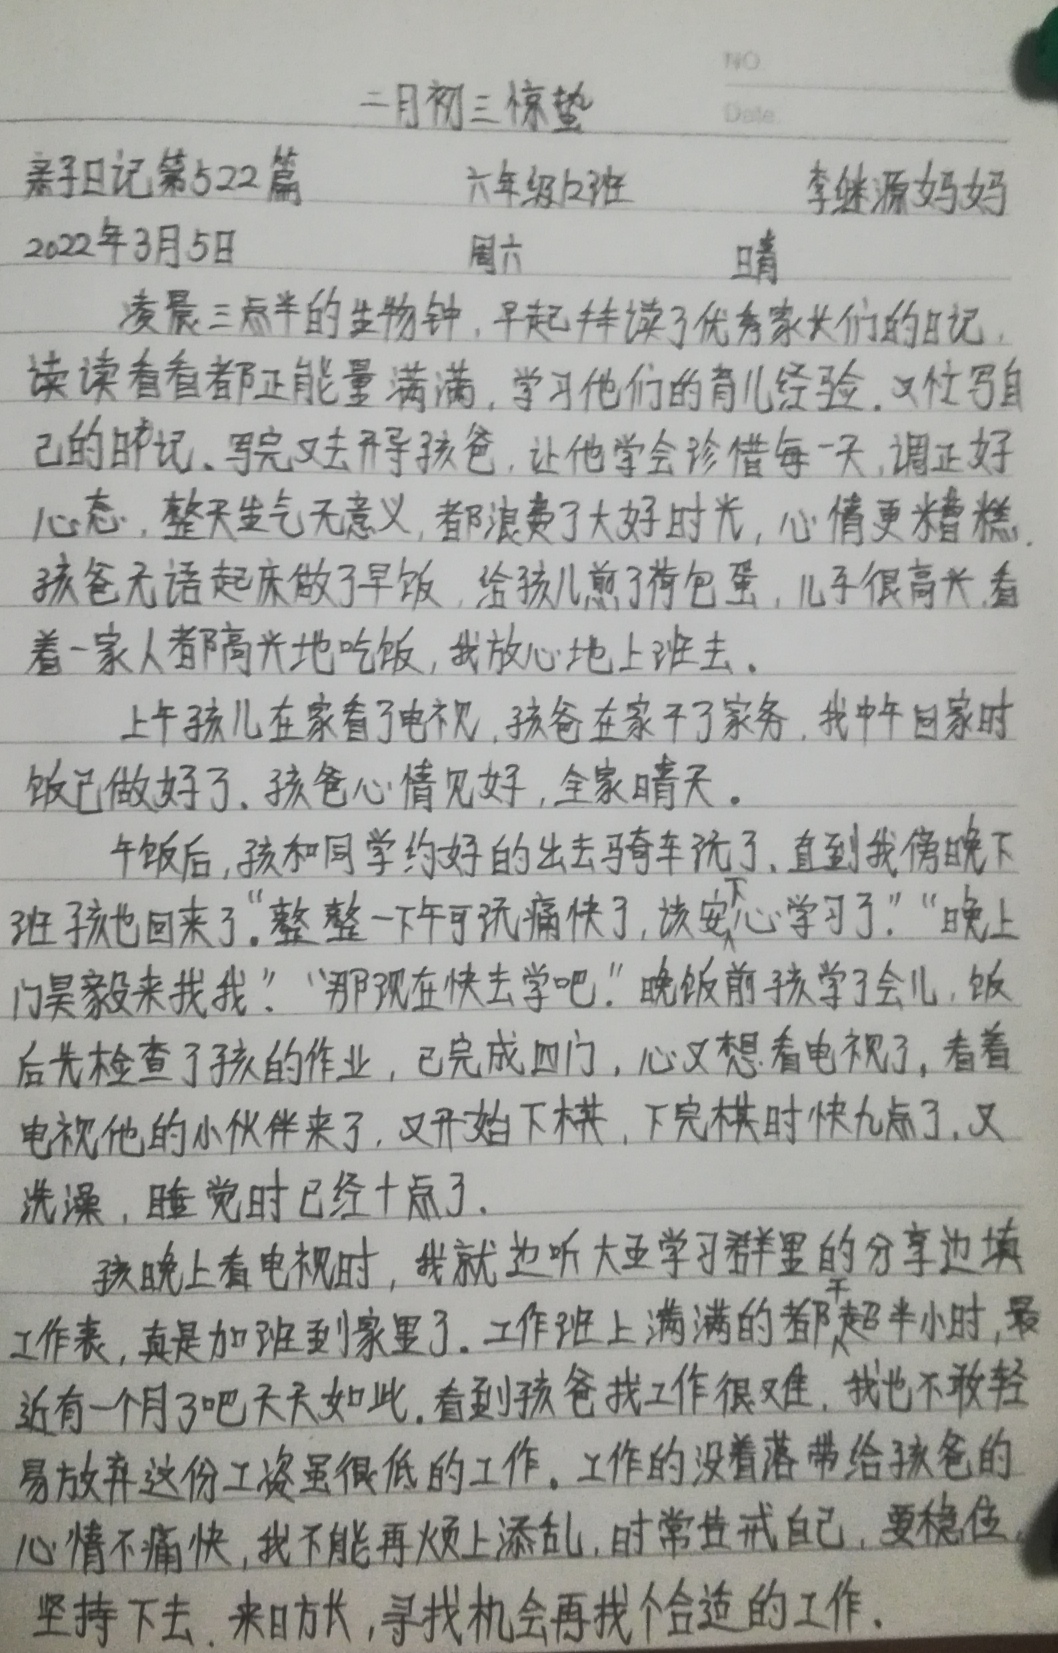 NO
二月初三惊蛰
Date
亲子日记第522篇 六年级12班 李继源妈妈
2022年3月5日 周六 晴
凌晨三点半的生物钟，早起拜读了优秀家长们的日记，
读读看看都正能量满满，学习他们的育儿经验。又忙写自
己的日记。写完又去开导孩爸，让他学会珍惜每一天，调正好
心态，整天生气无意义，都浪费了大好时光，心情更糟糕。
孩爸无语起床做了早饭，给孩儿煎了荷包蛋，儿子很高兴，看
着一家人都高兴地吃饭，我放心地上班去。
上午孩儿在家看了电视，孩爸在家干了家务，我中午回家时
饭已做好了。孩爸心情见好，全家晴天。
午饭后，孩和同学约好的出去骑车玩了，直到我傍晚下
班孩也回来了。“整整一下午可玩痛快了，该安下心学习了”“晚上
门昊毅来找我”“那现在快去学吧。”晚饭前孩学了会儿，饭
后先检查了孩的作业，已完成四门，心又想看电视了，看着
电视他的小伙伴来了，又开始下棋，下完棋时快九点了，又
洗澡，睡觉时已经十点了。
孩晚上看电视时，我就边听大亚学习群里的分享边填
工作表，真是加班到家里了。工作班上满满的都干超半小时，最
近有一个月了吧天天如此。看到孩爸找工作很难，我也不敢轻
易放弃这份工资虽很低的工作。工作的没着落带给孩爸的
心情不痛快，我不能再烦上添乱，时常告戒自己，要稳住，
坚持下去，来日方长，寻找机会再找个合适的工作。